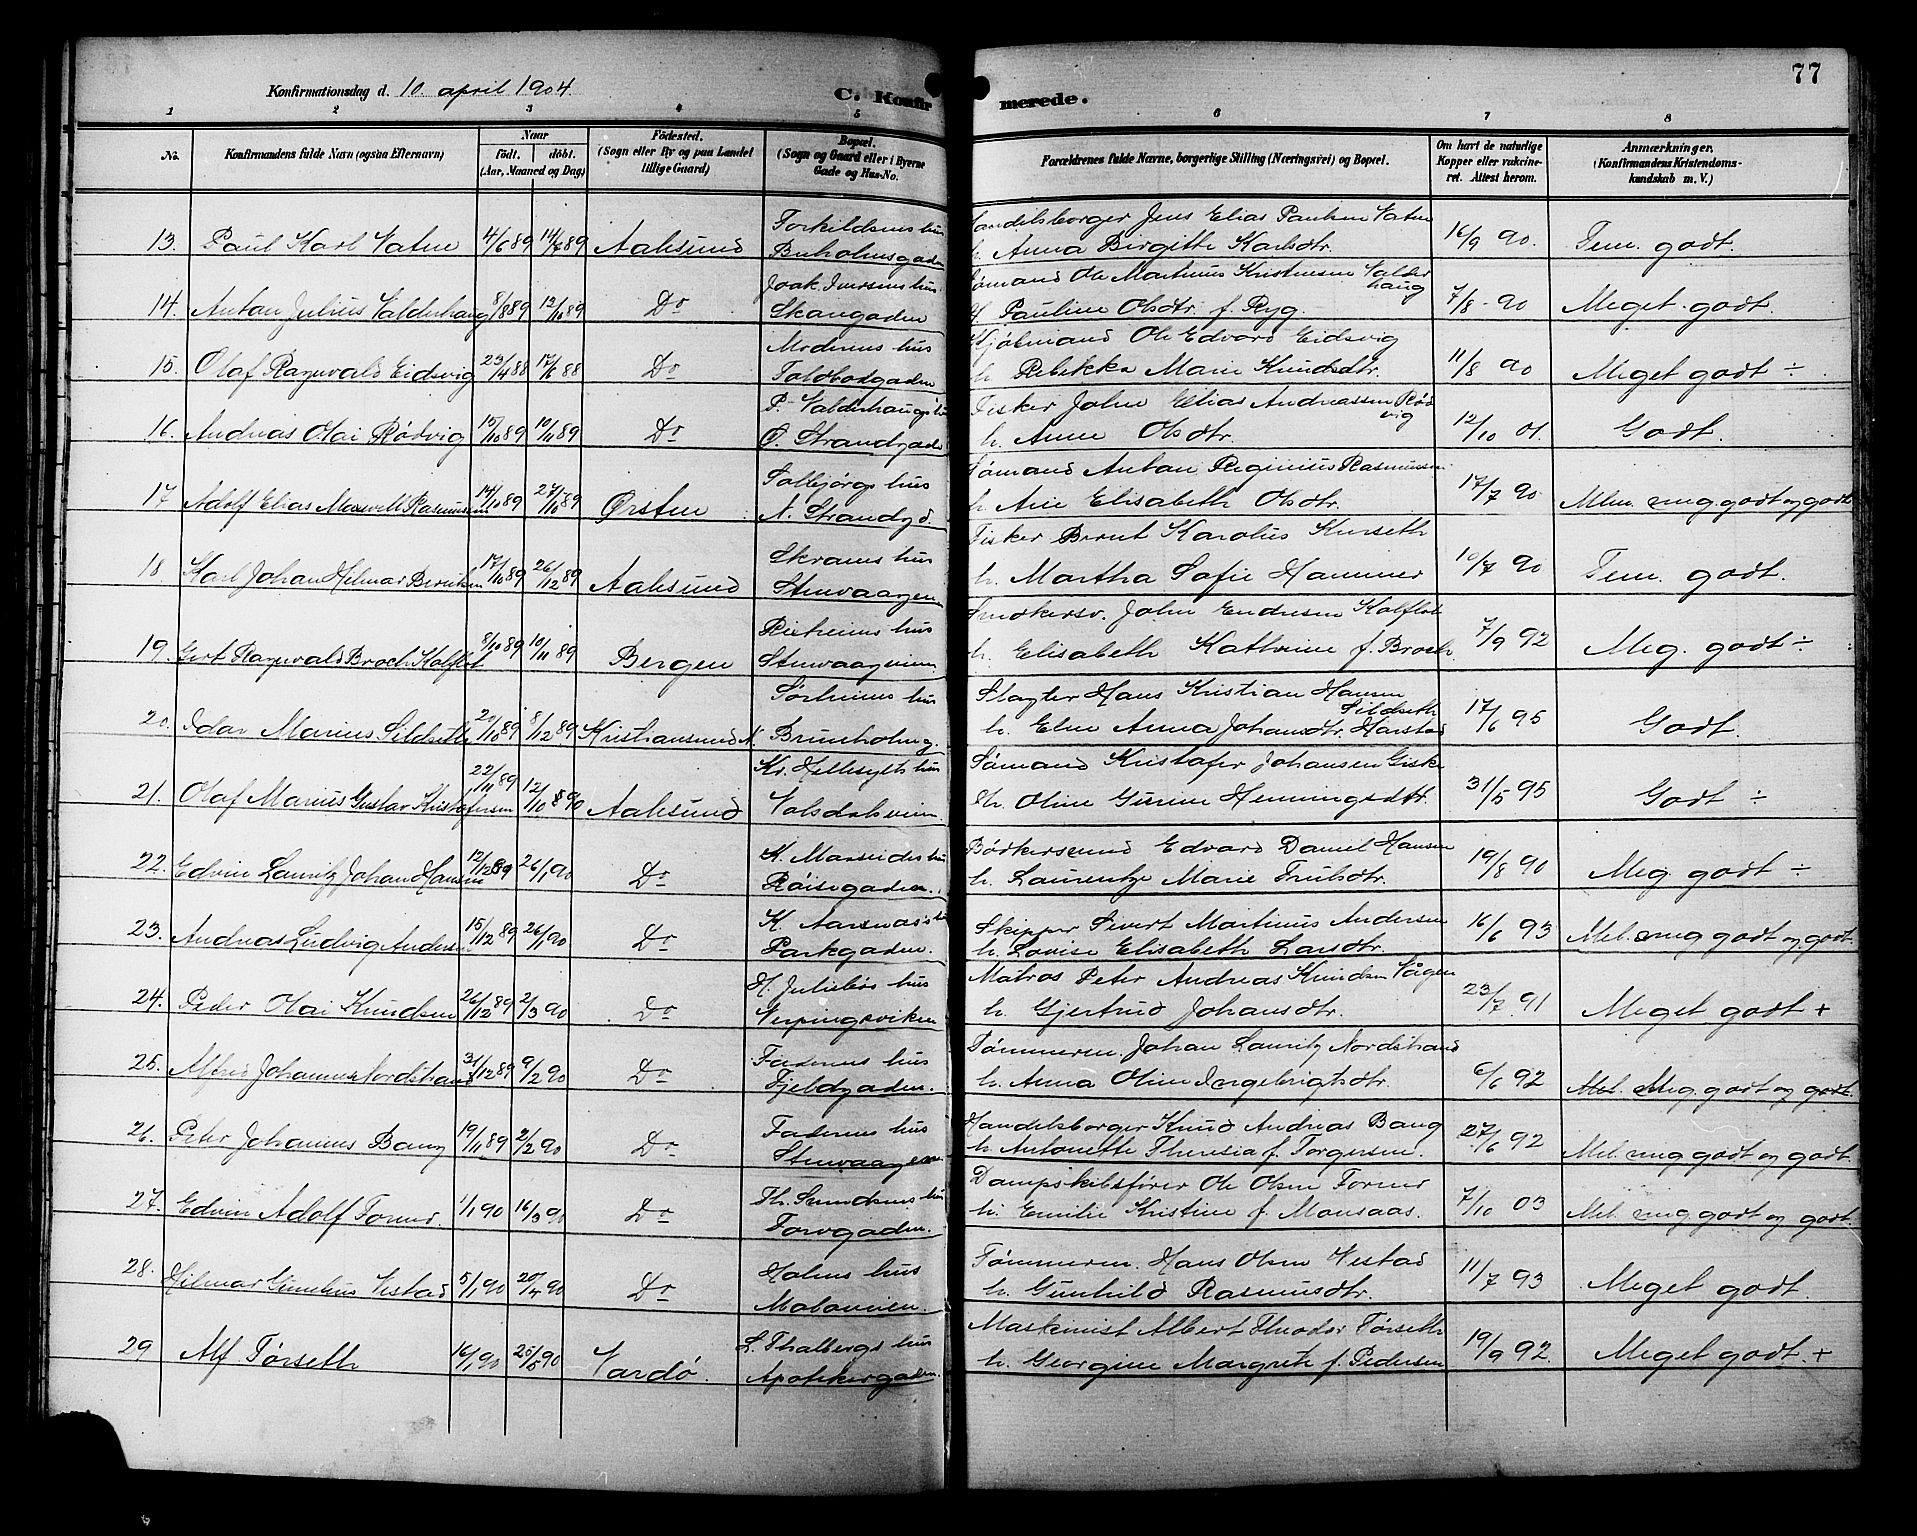 77
Konfirmationsdag d. 10 april 1904.
C. Konfirmerede.
1 2 3 4 5 6 7 8
No. Konfirmandens fulde Navn (ogsaa Efternavn) Naar født. døbt. (Aar, Maaned og Dag) Födested. (Sogn eller By og paa Landet tillige Gaard) Bopæl. (Sogn og Gaard eller i Byerne Gade og Hus-No. Forældrenes fulde Navne, borgerlige Stilling (Næringsvei) og Bopæl. Om havt de naturlige Kopper eller vakcineret. Attest herom. Anmærkninger, (Konfirmandens Kristendomskundskab m. V.)
Handelsborger Jens Elias Paulsen Vatne
13. Paul Karl Vatne 4/6 89 14/6 89 Aalesund Buholmsgaden h. Anna Birgitte Karlsdtr. 16/9 90. Tem. godt.
Sømand Ole Martinus Kristensen Valderhaug
14. Anton Julius Valderhaug 8/8 89 13/10 89 Do Skaregaden H. Pauline Olsdtr. f. Ryg. 7/8 90 Meget godt.
Moderens hus Ole Edvard Eidsvig
15. Olaf Ragnvald Eidsvig 23/4 88 17/6 88 Do Toldbodgaden h. Rebekka Marie Knudsdtr. 11/8 90 Meget godt ÷
P. Valderhaugs hus Fisker Johan Elias Andreassen Rødvig
16. Andreas Olai Rødvig 15/10 89 10/11 89 Do Ø. Strandgade h. Anne Olsdtr. 12/10 01. Godt.
Solbjørgs hus Sømand Anton Reginius Rasmussen
17 Adolf Elias Maxwell Rasmussen 14/10 89 27/10 89 Ørsten N. Strandgd. h. Ane Elisabeth Olsdtr. 17/7 90 Mlm. meg. godt og godt
Skrams hus Fisker Bernt Karolus Kurseth
18 Karl Johan Hilmar Berntsen 17/10 89 26/12 89 Aalesund Stenvaagen h. Martha Sofie Hammer 10/7 90 Tem. godt.
John Endresen Kalflot
19. Gert Ragnvald Broch Kalflot 8/10 89 10/11 89 Bergen Stenvaagveien h. Elisabeth Kathrine f. Broch. 7/9 92 Meg. godt ÷
Sørheims hus Slagter Hans Kristian Hansen Sildseth
20. Idar Marius Sildseth 20/10 89 8/12 89 Kristiansund N. Brunholmg. h. Elen Anna Johansdtr. Harstad 17/6 95 Godt.
Kr. Hellesylts hus Sømand Kristofer Johansen Giske
21. Olaf Marius Gustav Kristofersen 22/11 89 12/10 890 Aalesund Volsdalsveien h. Oline Gurine Henningsdtr. 31/5 95 Godt ÷
Bødkersvend Edvard Daniel Hansen
22. Edvin Lauritz Johan Hansen 12/12 89 26/1 90 Do Røisegaden. h. Laurentze Marie Trulsdtr. 19/8 90 Meg. godt ÷
K. Aarsnæs's hus Skipper Sivert Martinus Andersen
23. Andreas Ludvig Andersen 15/12 89 26/1 90 Do Parkgaden. h. Lovise Elisabeth Larsdtr. 16/6 93 Mel. meg godt og godt.
H. Juliebøs hus Matros Peter Andreas Knudsen Vågen
24. Peder Olai Knudsen 26/12 89 2/3 90 Do Nerpingsviken h. Gjertrud Johansdtr. 23/7 91 Meget godt +
Faderens hus Tømmerm. Johan Lauritz Nordstrand
25. Alfred Johannes Nordstrand 31/12 89 9/2 90 Do Fjeldgaden. h. Anna Oline Ingebrigtsdtr. 6/6 92 Mel. Meg. godt og godt.
Faderens hus Handelsborger Knud Andreas Bang
26. Peter Johannes Bang 19/11 89 2/2 90 Do Stenvaagen h. Antonette Theresia f. Torgersen. 27/6 92 Mel. meg godt og godt.
Th. Sundsens hus Dampskibsfører Ole Olsen Former
27. Edvin Adolf Former. 1/1 90 16/3 90 Do Torvgaden. h. Emilie Kristine f. Monsaas. 7/10 03 Mel. meg. godt og godt.
Holms hus Tømmerm. Hans Olsen Vestad
28. Hilmar Gunelius Vestad 5/1 90 20/4 90 Do h. Gunhild Rasmusdtr. 11/7 93 Meget godt.
L. Thalbergs hus Maskinist Albert Theodor Tørseth
29 Alf Tørseth 16/1 90 25/5 90 Vardø. Apothekergaden. h. Georgine Margrete f. Pedersen 19/9 92. Meget godt. +